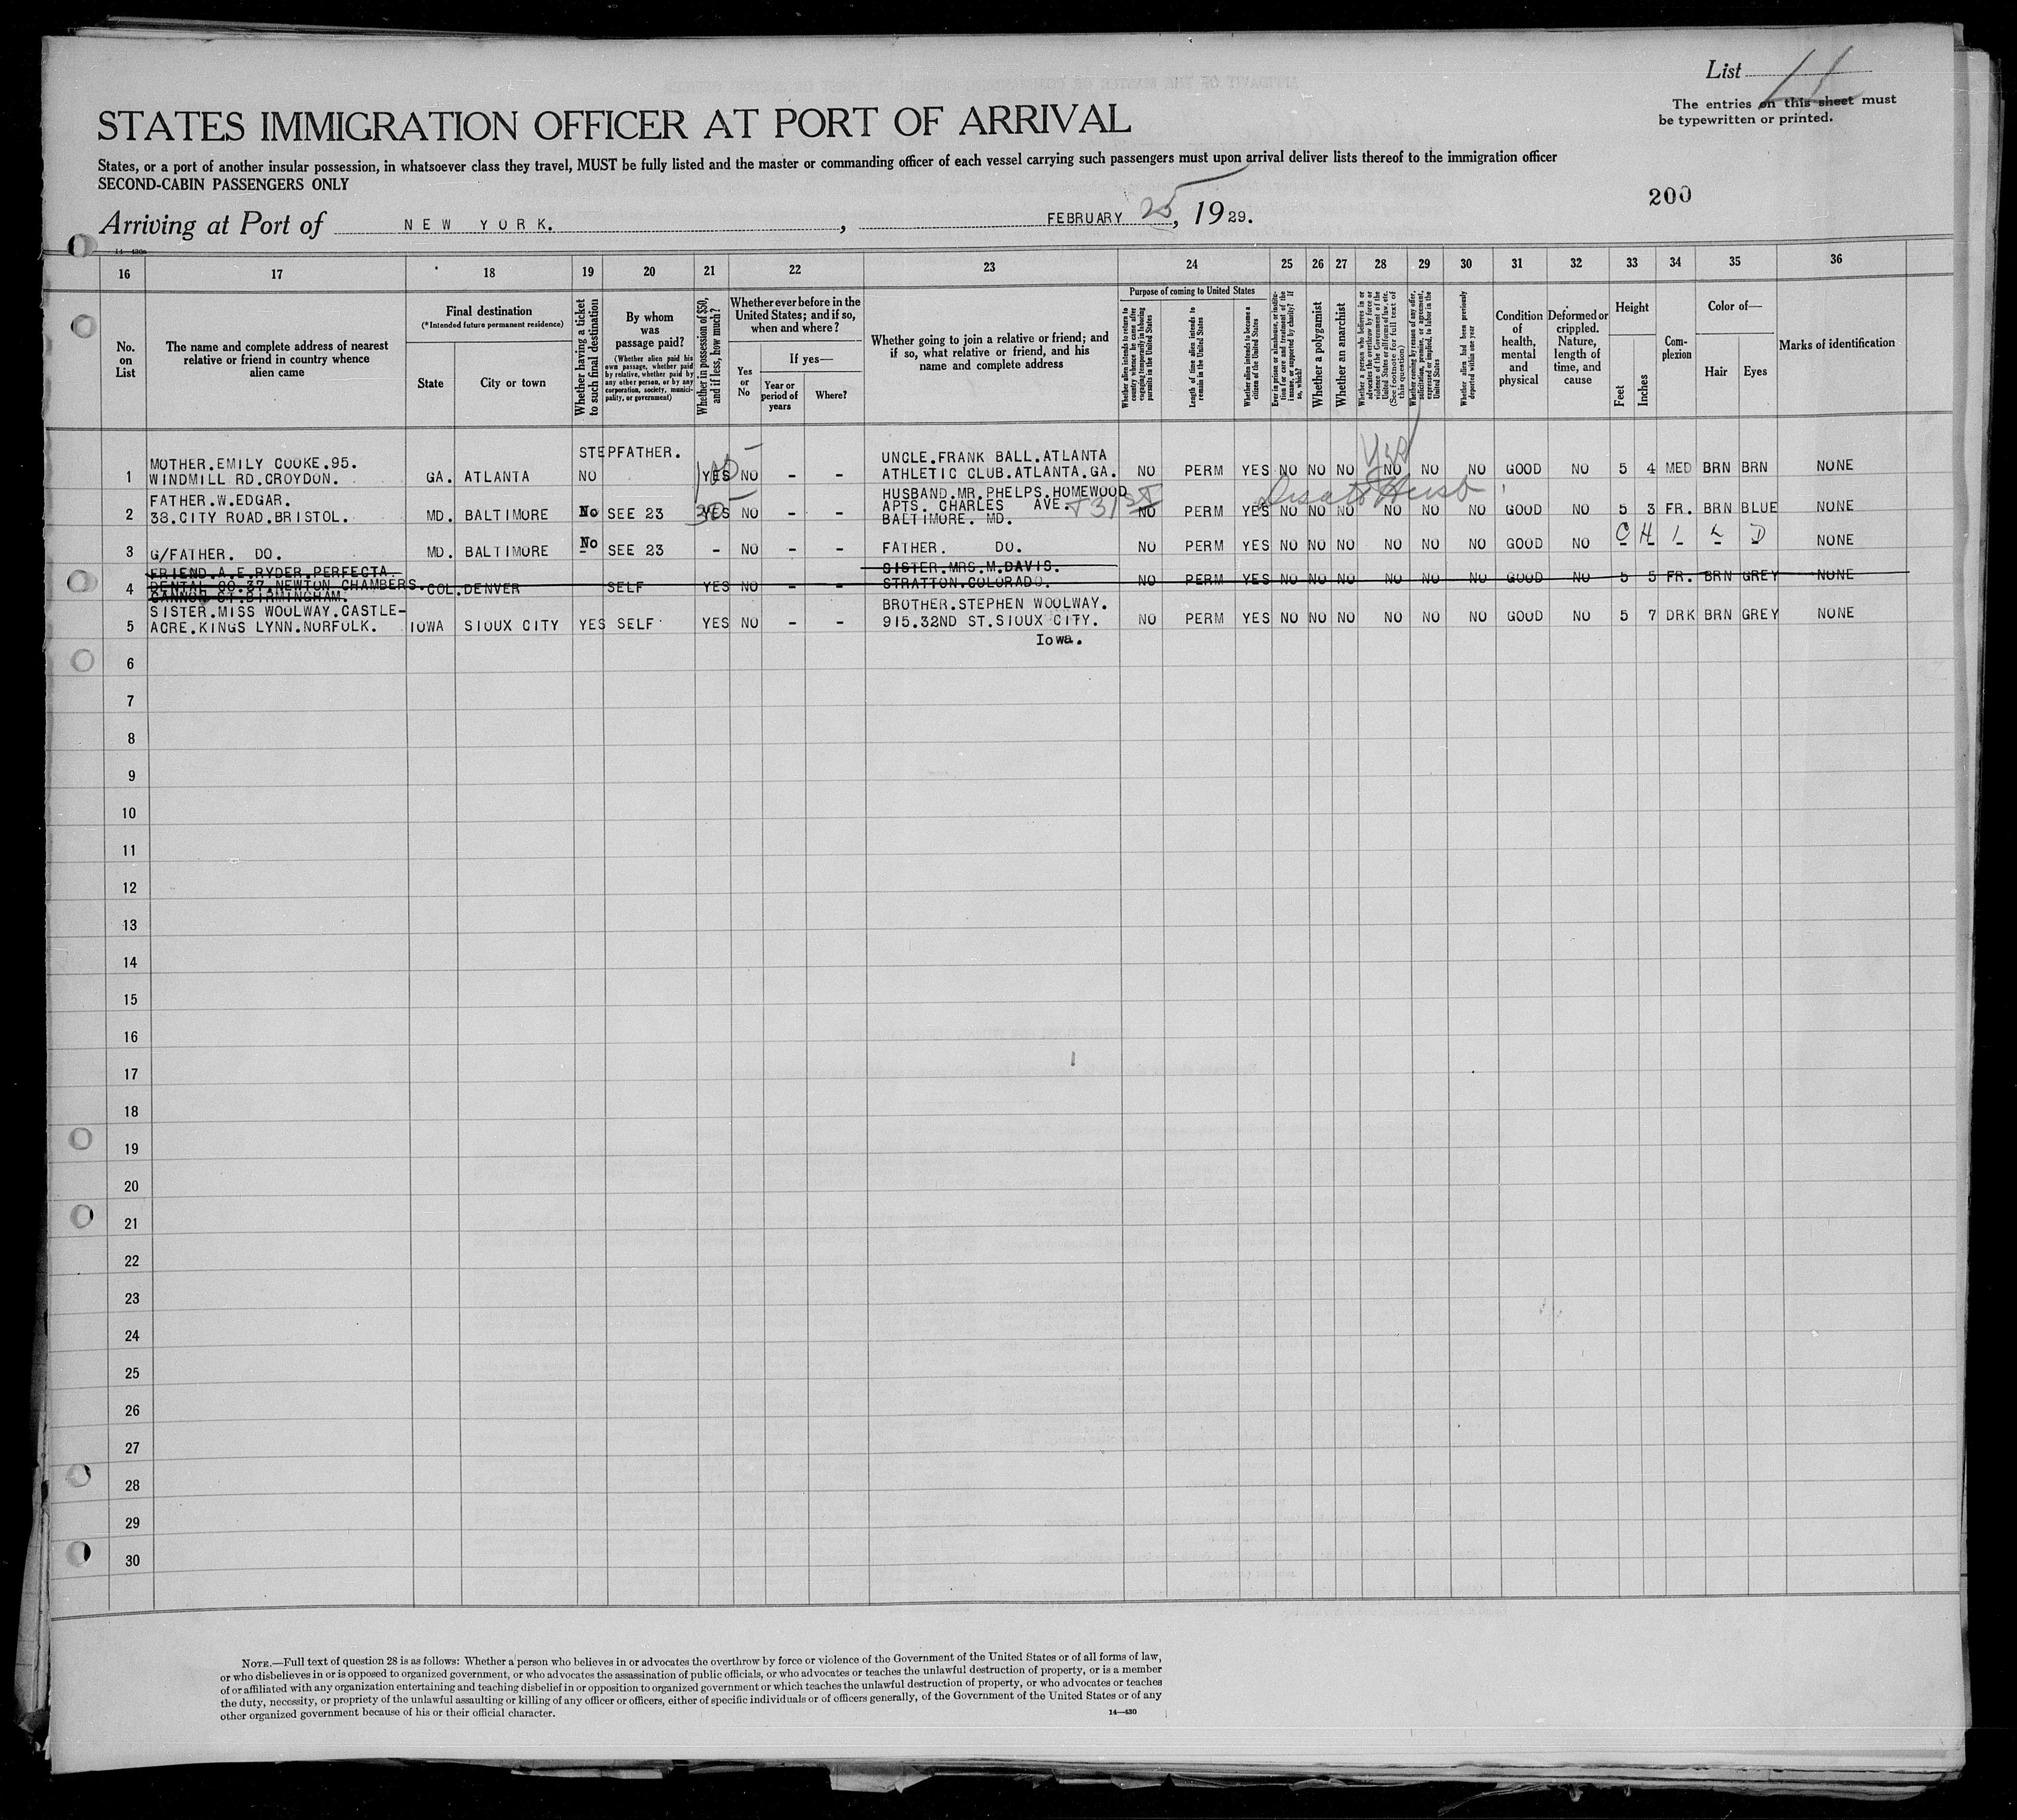 List 11
The entries on this sheet must
be typewritten or printed.
STATES IMMIGRATION OFFICER AT PORT OF ARRIVAL
States, or a port of another insular possession, in whatsoever class they travel, MUST be fully listed and the master or commanding officer of each vessel carrying such passengers must upon arrival deliver lists thereof to the immigration officer
SECOND-CABIN PASSENGERS ONLY
200
Arriving at Port of NEW YORK., FEBRUARY 25, 1929.
14—430a
16 17 18 19 20 21 22 23 24 25 26 27 28 29 30 31 32 33 34 35 36
No.
on
List
The name and complete address of nearest
relative or friend in country whence
alien came
Final destination
(*Intended future permanent residence)
State
City or town
Whether having a ticket
to such final destination
By whom
was
passage paid?
(Whether alien paid his
own passage, whether paid
by relative, whether paid by
any other person, or by any
corporation, society, munici-
pality, or government)
Whether in possession of $50,
and if less, how much?
Whether ever before in the
United States; and if so,
when and where?
Yes
or
No
If yes—
Year or
period of
years
Where?
Whether going to join a relative or friend; and
if so, what relative or friend, and his
name and complete address
Purpose of coming to United States
Whether alien intends to return to
country whence he came after
engaging temporarily in laboring
pursuits in the United States
Length of time alien intends to
remain in the United States
Whether alien intends to become a
citizen of the United States
Ever in prison or almshouse, or institu-
tion for care and treatment of the
insane, or supported by charity? If
so, which?
Whether a polygamist
Whether an anarchist
Whether a person who believes in or
advocates the overthrow by force or
violence of the Government of the
United States or all forms of law, etc.
(See footnote for full text of
this question)
Whether coming by reason of any offer,
solicitation, promise, or agreement,
expressed or implied, to labor in the
United States
Whether alien had been previously
deported within one year
Condition
of
health,
mental
and
physical
Deformed or
crippled.
Nature,
length of
time, and
cause
Height
Feet
Inches
Com-
plexion
Color of—
Hair
Eyes
Marks of identification
STEPFATHER.
MOTHER.EMILY COOKE.95. UNCLE.FRANK BALL.ATLANTA Yes
1 WINDMILL RD.CROYDON. GA. ATLANTA NO 100 YES NO - - ATHLETIC CLUB.ATLANTA.GA. NO PERM YES NO NO NO NO NO NO GOOD NO 5 4 MED BRN BRN NONE
FATHER.W.EDGAR. HUSBAND.MR.PHELPS.HOMEWOOD
APTS. CHARLES AVE. + 31 ST
2 38.CITY ROAD.BRISTOL. MD. BALTIMORE No SEE 23 30 YES NO - - BALTIMORE. MD. NO PERM YES NO NO NO NO NO NO GOOD NO 5 3 FR. BRN BLUE NONE
3 G/FATHER. DO. MD. BALTIMORE No SEE 23 - NO - - FATHER. DO. NO PERM YES NO NO NO NO NO NO GOOD NO C H I L D NONE
FRIEND.A.E.RYDER.PERFECTA SISTER.MRS.M.DAVIS.
4 DENTAL CO.37.NEWTON CHAMBERS. COL. DENVER SELF YES NO - - STRATTON.COLORADO. NO PERM YES NO NO NO NO NO NO GOOD NO 5 5 FR. BRN GREY NONE
CANNON ST.BIRMINGHAM.
SISTER.MISS WOOLWAY.CASTLE- BROTHER.STEPHEN WOOLWAY.
5 ACRE.KINGS LYNN.NORFOLK. IOWA SIOUX CITY YES SELF YES NO - - 915.32ND ST.SIOUX CITY. NO PERM YES NO NO NO NO NO NO GOOD NO 5 7 DRK BRN GREY NONE
Iowa.
6
7
8
9
10
11
12
13
14
15
16
17
18
19
20
21
22
23
24
25
26
27
28
29
30
NOTE.—Full text of question 28 is as follows: Whether a person who believes in or advocates the overthrow by force or violence of the Government of the United States or of all forms of law,
or who disbelieves in or is opposed to organized government, or who advocates the assassination of public officials, or who advocates or teaches the unlawful destruction of property, or is a member
of or affiliated with any organization entertaining and teaching disbelief in or opposition to organized government or which teaches the unlawful destruction of property, or who advocates or teaches
the duty, necessity, or propriety of the unlawful assaulting or killing of any officer or officers, either of specific individuals or of officers generally, of the Government of the United States or of any
other organized government because of his or their official character.
14—430